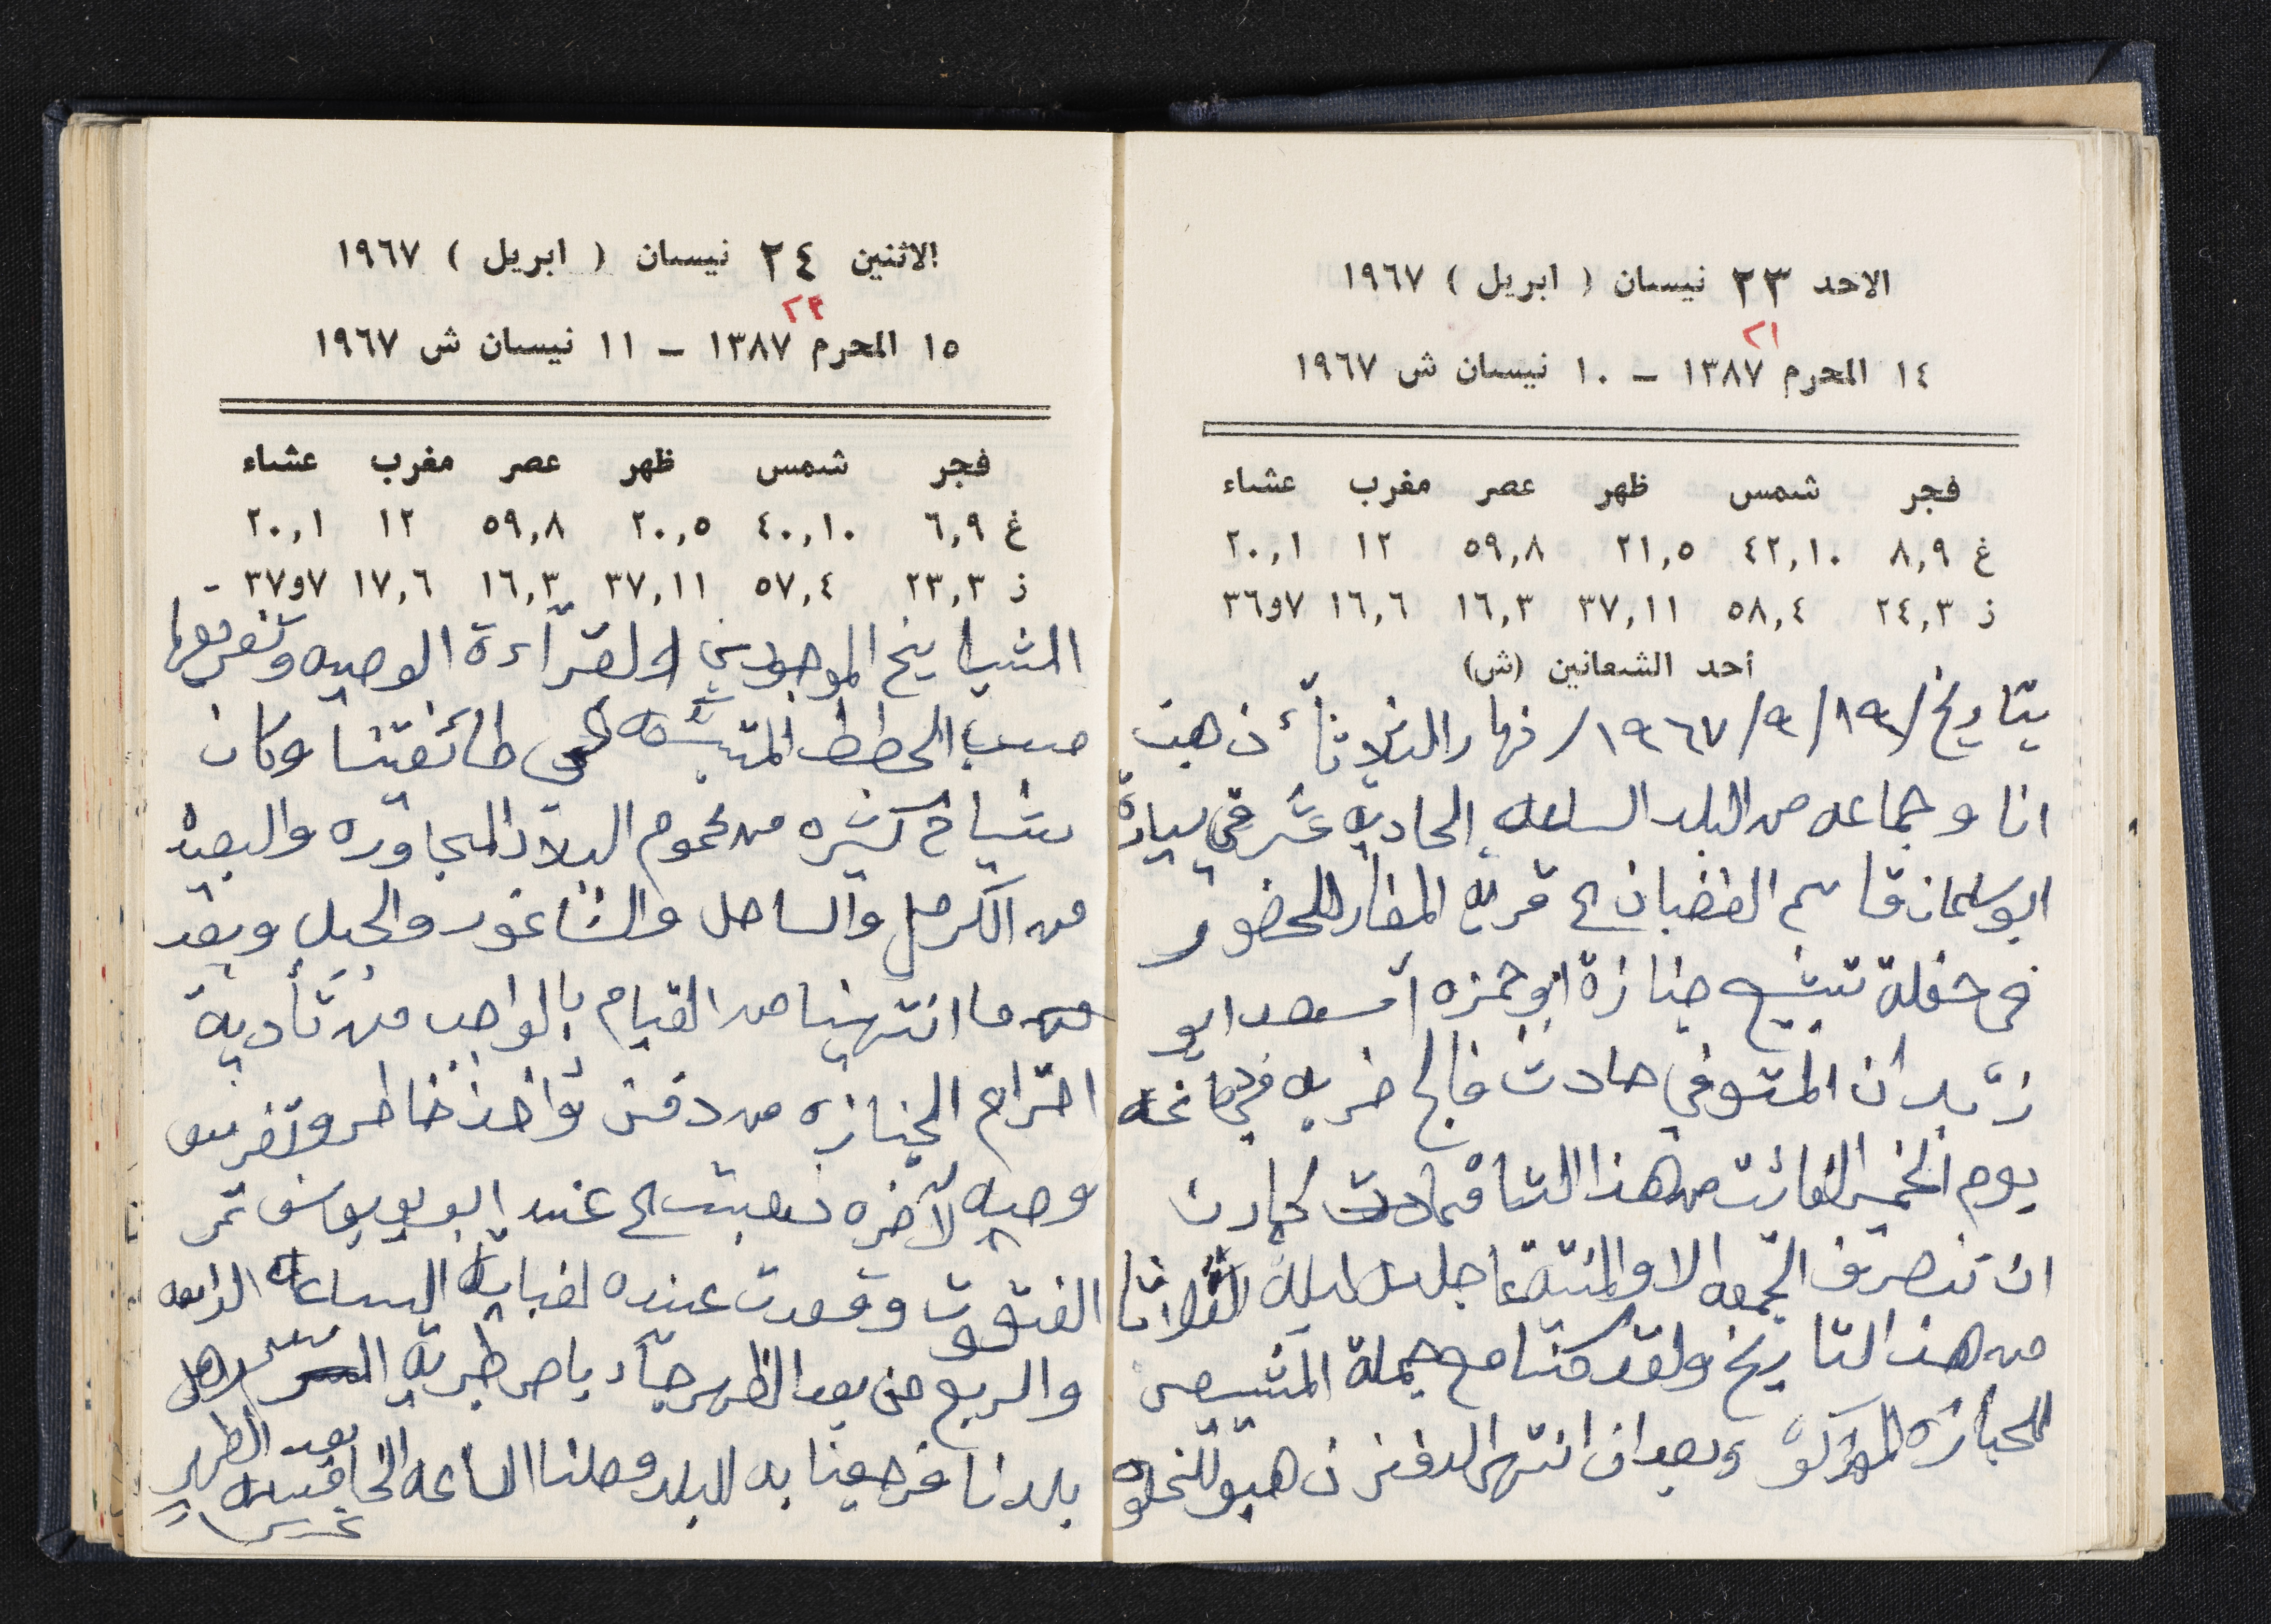 الاحد ٢٣ نيسان ( ابريل ) ١٩٦٧
٢١
١٤ المحرم ١٣٨٧ – ١٠ نيسان ش ١٩٦٧
فجر شمس ظهر عصر مغرب عشاء
غ ٨,٩ ٤٢,١٠ ٢١,٥ ٥٩,٨ ١٢ ٢٠,١
ز ٢٤,٣ ٥٨,٤ ٣٧,١١ ١٦,٣ ١٦,٦ ٧و٣٦
أحد الشعانين (ش)
بتاريخ /١٩/٩/١٩٦٧/ نهار الثلاثأ ذهبت
انا وجماعه من البلد الساعه الحاديه عشر في سيارة
ابو سلمان قاسم الغضبان الى قرية المغار للحضور
في حفلة تشيع جنازة ابو حمزه اسعد ابو
زيدان المتوفي حادث فالج ضربه في دماغه
يوم الخميس الفائت من هذا
ان تنصرف الجمعه الا والمنية عاجله ليلة الثلاثا
من هذا التاريخ ولقد كنا مع جملة المشيعين
للجنازه المذكوره وبعد ان انتهى الدفن ذهبو للخلوه
الاثنين ٢٤ نيسان ( ابريل ) ١٩٦٧
٢٢
١٥ المحرم ١٣٨٧ – ١١ نيسان ش ١٩٦٧
فجر شمس ظهر عصر مغرب عشاء
غ ٦,٩ ٤٠,١٠ ٢٠,٥ ٥٩,٨ ١٢ ٢٠,١
ز ٢٣,٣ ٥٧,٤ ٣٧,١١ ١٦,٣ ١٧,٦ ٧و٣٧
المشايخ الموجودين لقرآءة الوصيه وتفريقها
حسب الخطط المتبعه في طائفتنا وكان
شياخ كثيره من عموم البلاد المجاوره والبعيده
من الكرمل والساحل والشاغور والجبل وبعد
ما انتهينا من القيام بالواجب من تأدية
احترام الجنازه من دفن وأخذ خاطر وتفريق
وصيه لآخره ذهبت الى عند ابو يوسف نمر
وقعدت عنده لغباية الساعه الرابعه
والربع من بعد الظهر جآء باص طبريه اهل
بلدنا فرجعنا به للبلد وصلنا الساعه الخامسه بعد الظهر